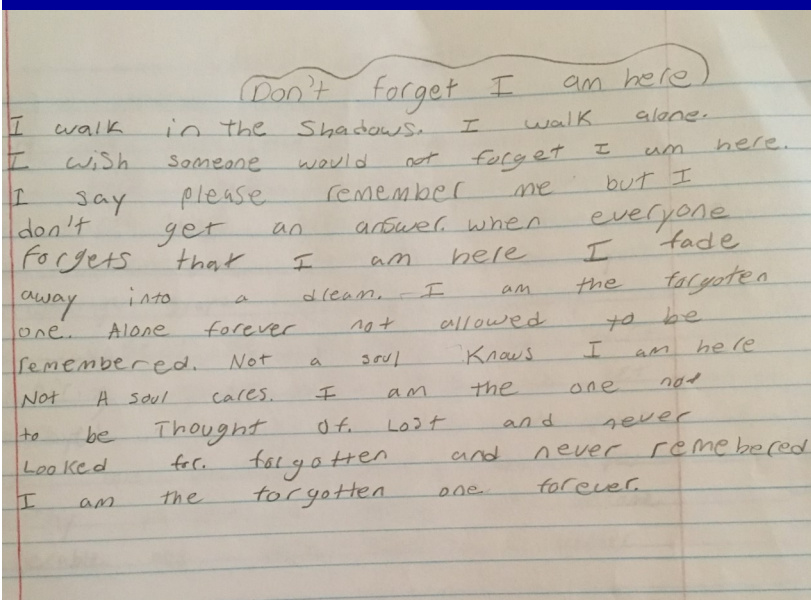 Don't forget I am here
I walk in the Shadows. I walk alone.
I wish someone would not forget I am here.
I say please remember me but I
don't get an answer. when everyone
forgets that I am here I fade
away into a dream. I am the forgoten
one. Alone forever not allowed to be
remembered. Not a soul Knows I am here
Not A soul cares. I am the one not
to be Thought of. Lost and never
Looked for. forgotten and never remebered
I am the forgotten one forever.